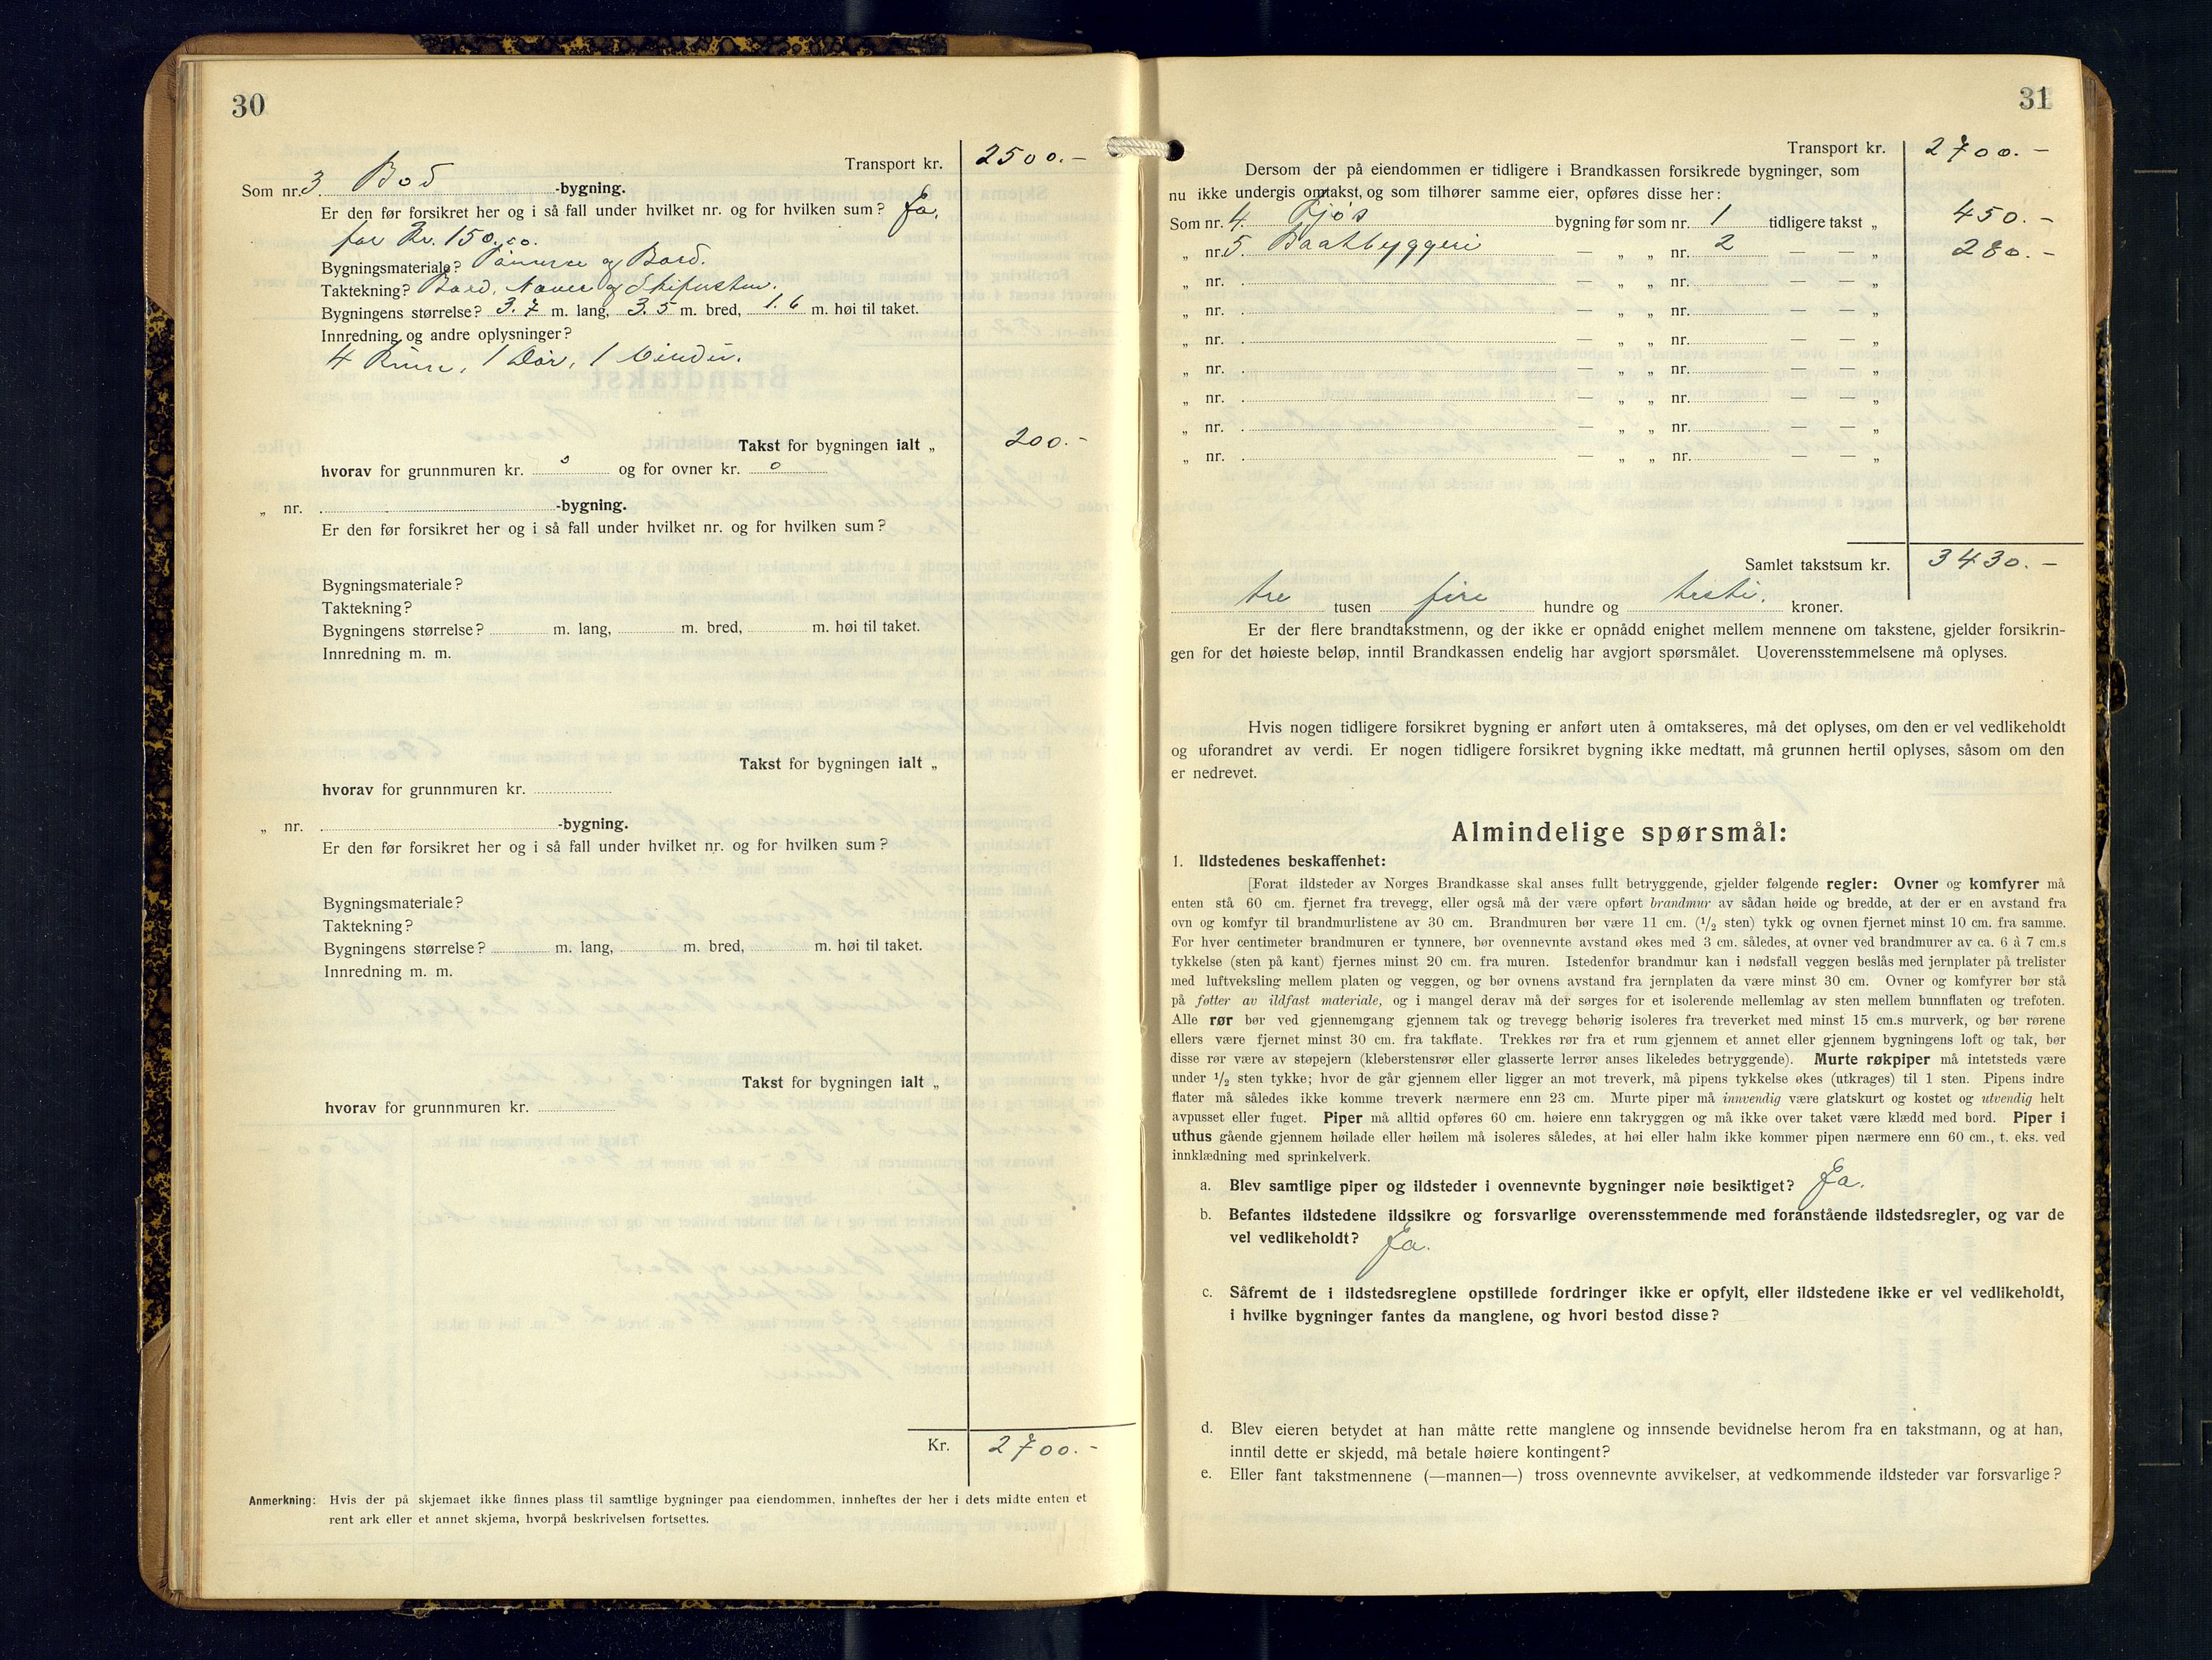 30
Transport kr. 2500.-
Som nr. 3 Bod -bygning.
Er den før forsikret her og i så fall under hvilket nr. og for hvilken sum? Ja.
for Kr. 150.00.
Bygningsmateriale? Tømmer og Bord.
Taktekning? Bord, Næver og
Bygningens størrelse? 3.7 m. lang, 3.5 m. bred, 1.6 m. høi til taket.
Innredning og andre oplysninger?
4 Rum, 1 Dør, 1 Vindu.
Takst for bygningen ialt „ 200.-
hvorav for grunnmuren kr. 0 og for ovner kr. 0
„ nr. -bygning.
Er den før forsikret her og i så fall under hvilket nr. og for hvilken sum?
Bygningsmateriale?
Taktekning?
Bygningens størrelse? m. lang, m. bred, m. høi til taket.
Innredning m. m.
Takst for bygningen ialt „
hvorav for grunnmuren kr.
„ nr. -bygning.
Er den før forsikret her og i så fall under hvilket nr. og for hvilken sum?
Bygningsmateriale?
Taktekning?
Bygningens størrelse? m. lang, m. bred, m. høi til taket.
Innredning m. m.
Takst for bygningen ialt „
hvorav for grunnmuren kr.
Kr. 2700.-
Anmerkning: Hvis der på skjemaet ikke finnes plass til samtlige bygninger paa eiendommen, innheftes der her i dets midte enten et
rent ark eller et annet skjema, hvorpå beskrivelsen fortsettes.
31
Transport kr. 2700.-
Dersom der på eiendommen er tidligere i Brandkassen forsikrede bygninger, som
nu ikke undergis omtakst, og som tilhører samme eier, opføres disse her:
Som nr. 4. Fjøs bygning før som nr. 1 tidligere takst „ 450.-
„ nr. 5. Baatbyggeri — „ „ nr. 2 — — „ 280.-
„ nr. — „ „ nr. — — „
„ nr. — „ „ nr. — — „
„ nr. — „ „ nr. — — „
„ nr. — „ „ nr. — — „
„ nr. — „ „ nr. — — „
„ nr. — „ „ nr. — — „
„ nr. — „ „ nr. — — „
Samlet takstsum kr. 3430.-
tre tusen fire hundre og tresti. kroner.
Er der flere brandtakstmenn, og der ikke er opnådd enighet mellem mennene om takstene, gjelder forsikrin-
gen for det høieste beløp, inntil Brandkassen endelig har avgjort spørsmålet. Uoverensstemmelsene må oplyses.
Hvis nogen tidligere forsikret bygning er anført uten å omtakseres, må det oplyses, om den er vel vedlikeholdt
og uforandret av verdi. Er nogen tidligere forsikret bygning ikke medtatt, må grunnen hertil oplyses, såsom om den
er nedrevet.
Almindelige spørsmål:
1. Ildstedenes beskaffenhet:
[Forat ildsteder av Norges Brandkasse skal anses fullt betryggende, gjelder følgende regler: Ovner og komfyrer må
enten stå 60 cm. fjernet fra trevegg, eller også må der være opført brandmur av sådan høide og bredde, at der er en avstand fra
ovn og komfyr til brandmurlistene av 30 cm. Brandmuren bør være 11 cm. (1/2 sten) tykk og ovnen fjernet minst 10 cm. fra samme.
For hver centimeter brandmuren er tynnere, bør ovennevnte avstand økes med 3 cm. således, at ovner ved brandmurer av ca. 6 à 7 cm.s
tykkelse (sten på kant) fjernes minst 20 cm. fra muren. Istedenfor brandmur kan i nødsfall veggen beslås med jernplater på trelister
med luftveksling mellem platen og veggen, og bør ovnens avstand fra jernplaten da være minst 30 cm. Ovner og komfyrer bør stå
på føtter av ildfast materiale, og i mangel derav må der sørges for et isolerende mellemlag av sten mellem bunnflaten og trefoten.
Alle rør bør ved gjennemgang gjennem tak og trevegg behørig isoleres fra treverket med minst 15 cm.s murverk, og bør rørene
ellers være fjernet minst 30 cm. fra takflate. Trekkes rør fra et rum gjennem et annet eller gjennem bygningens loft og tak, bør
disse rør være av støpejern (kleberstensrør eller glasserte lerrør anses likeledes betryggende). Murte røkpiper må intetsteds være
under 1/2 sten tykke; hvor de går gjennem eller ligger an mot treverk, må pipens tykkelse økes (utkrages) til 1 sten. Pipens indre
flater må således ikke komme treverk nærmere enn 23 cm. Murte piper må innvendig være glatskurt og kostet og utvendig helt
avpusset eller fuget. Piper må alltid opføres 60 cm. høiere enn takryggen og må ikke over taket være klædd med bord. Piper i
uthus gående gjennem høilade eller høilem må isoleres således, at høi eller halm ikke kommer pipen nærmere enn 60 cm., t. eks. ved
innklædning med sprinkelverk.
a. Blev samtlige piper og ildsteder i ovennevnte bygninger nøie besiktiget? Ja.
b. Befantes ildstedene ildssikre og forsvarlige overensstemmende med foranstående ildstedsregler, og var de
vel vedlikeholdt? Ja.
c. Såfremt de i ildstedsreglene opstillede fordringer ikke er opfylt, eller ildstedene ikke er vel vedlikeholdt,
i hvilke bygninger fantes da manglene, og hvori bestod disse?
d. Blev eieren betydet at han måtte rette manglene og innsende bevidnelse herom fra en takstmann, og at han,
inntil dette er skjedd, må betale høiere kontingent?
e. Eller fant takstmennene (—mannen—) tross ovennevnte avvikelser, at vedkommende ildsteder var forsvarlige?